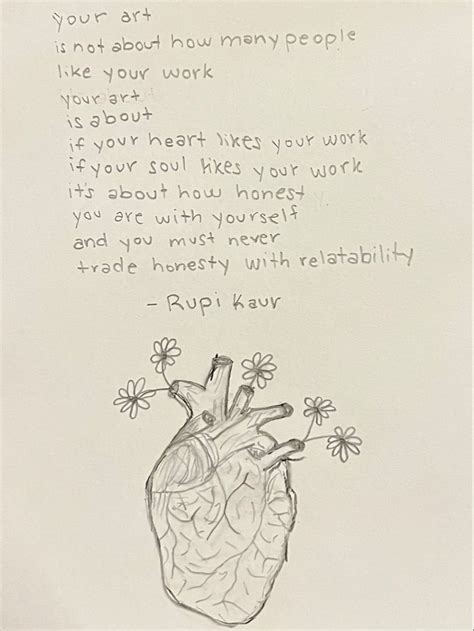 your art
is not about how many people
like your work
your art
is about
if your heart likes your work
if your soul likes your work
it's about how honest
you are with yourself
and you must never
trade honesty with relatability
- Rupi Kaur